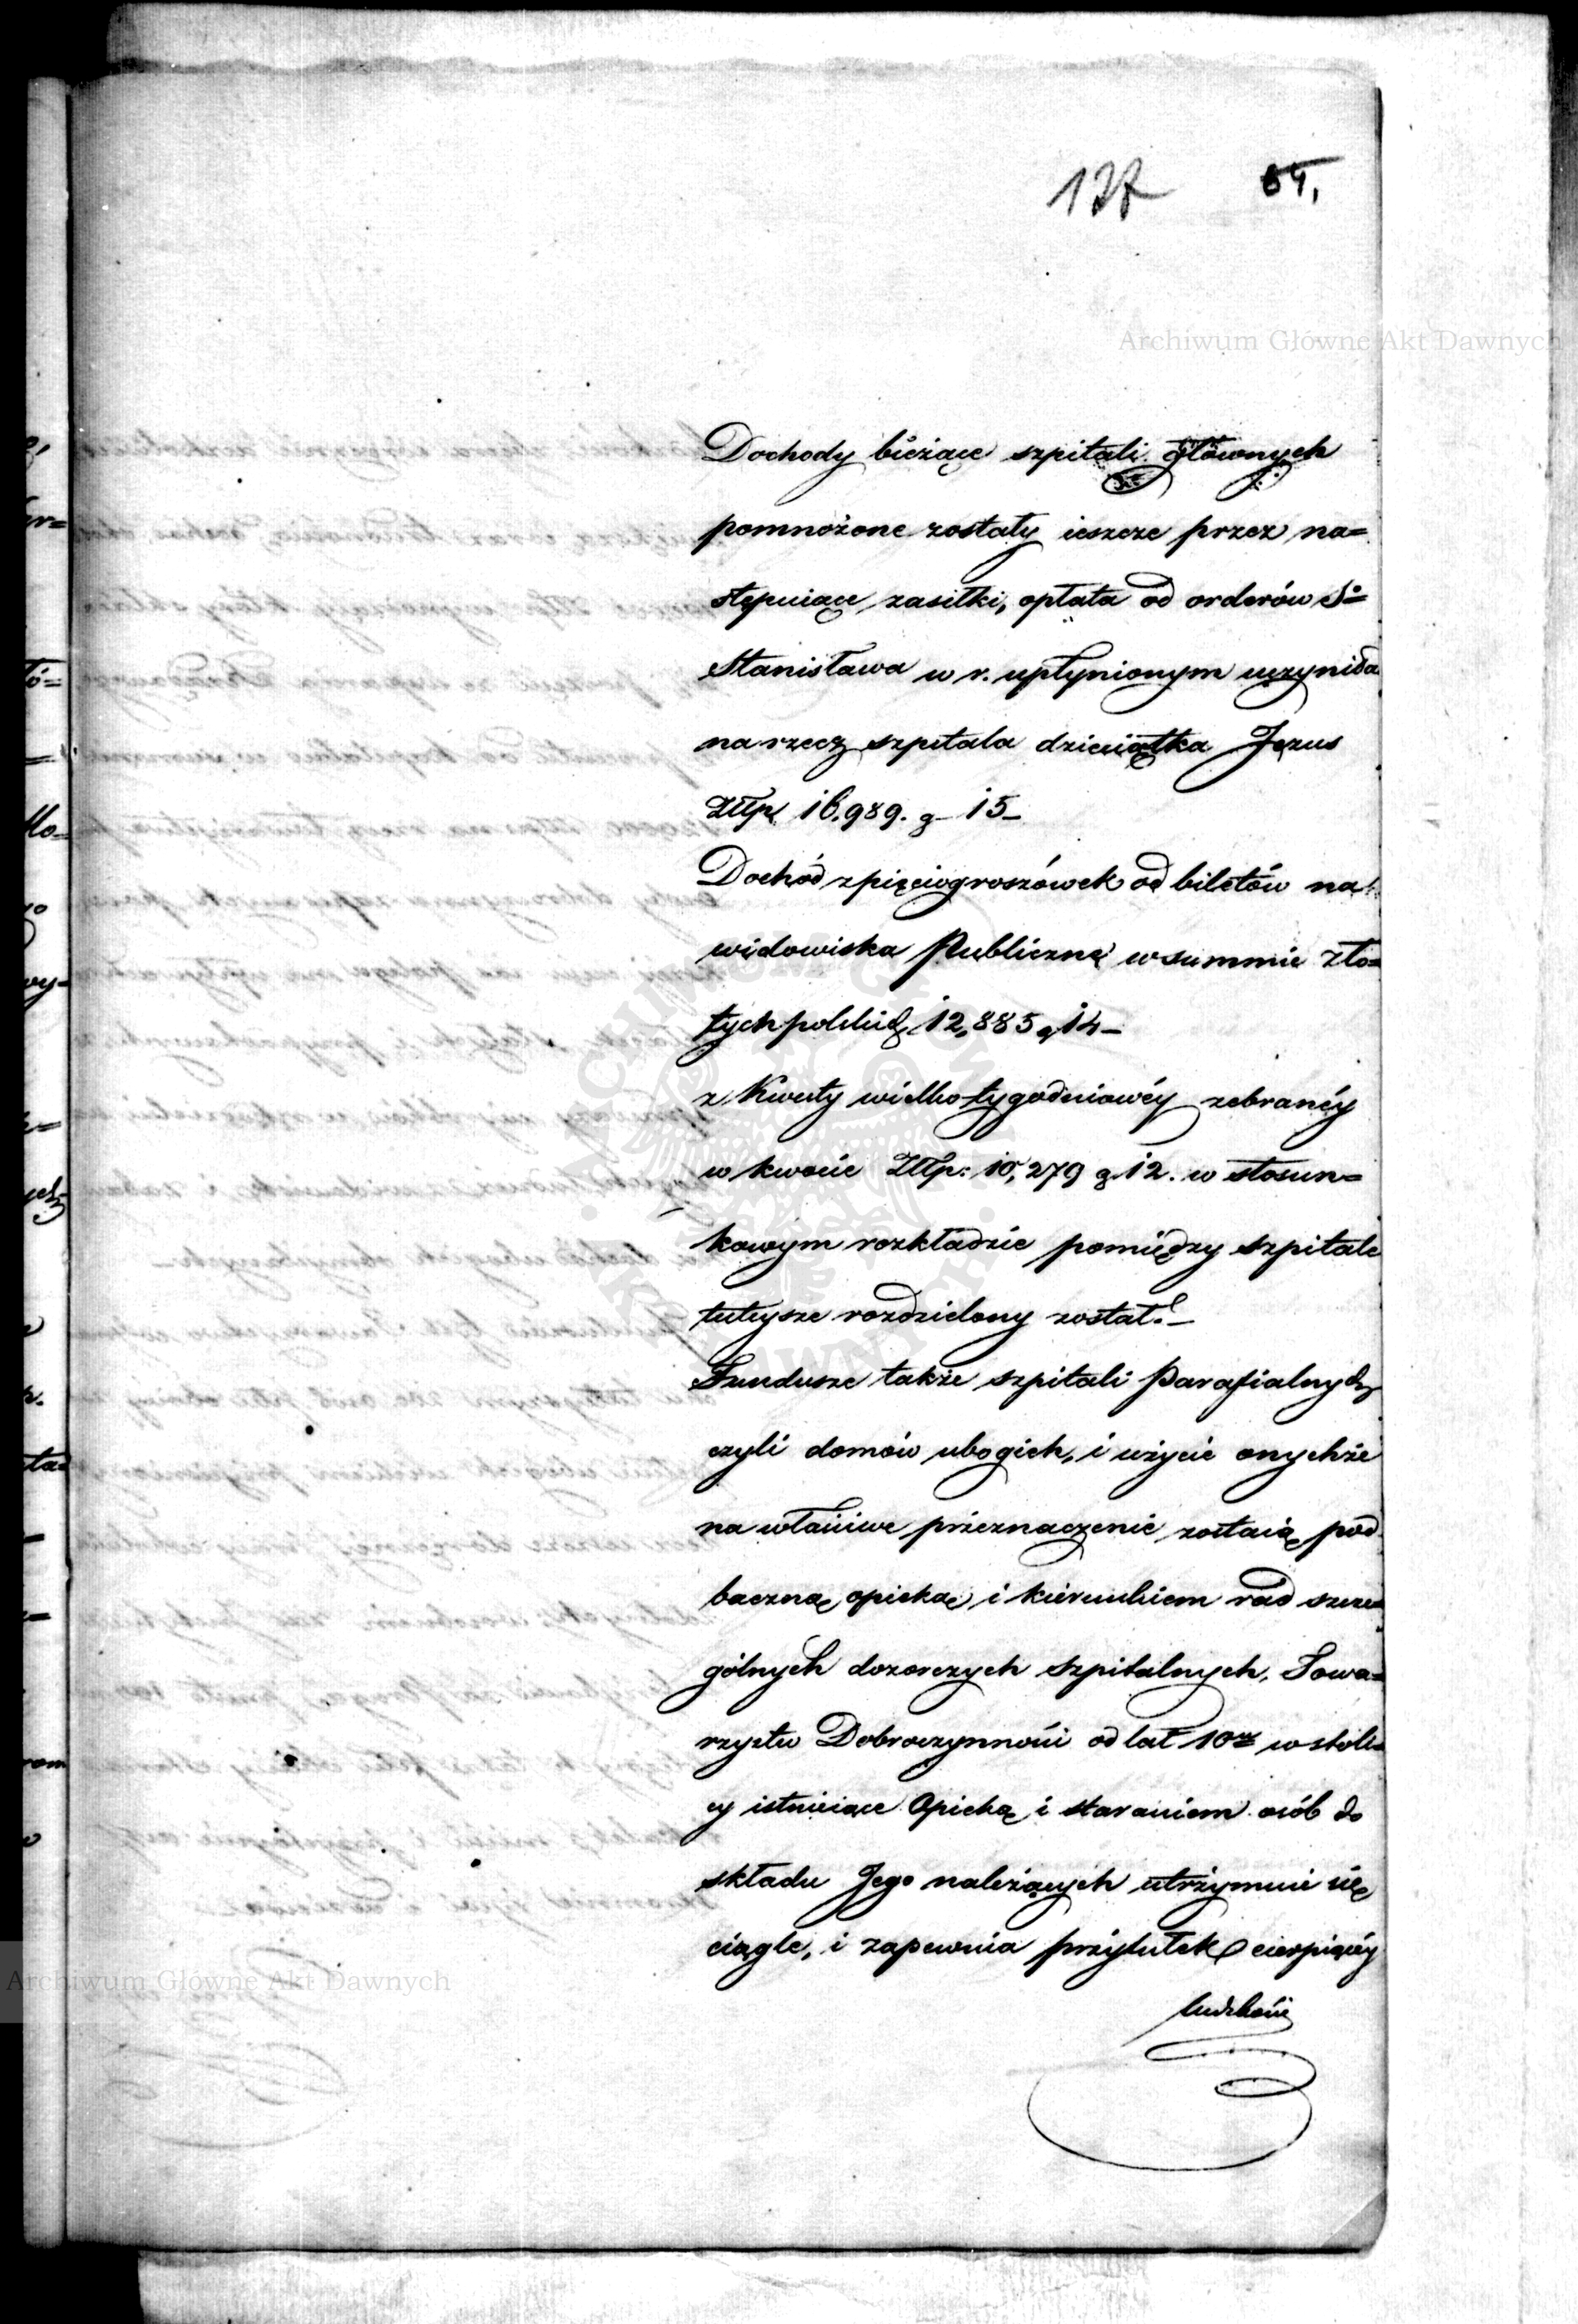 127 64.
Archiwum Główne Akt Dawnych
Dochody bieżące szpitali głównych
pomnożone zostały ieszcze przez na=
stępuiące zasiłki, opłata od orderów Sº
Stanisława w r. upłynionym uczyniła
na rzecz szpitala dzieciątka Jezus
Złłp. 16.989. g 15_
Dochód z pięciogroszówek od biletów na
widowiska Publiczne w summie zło=
tych polskich 12,885 g 14_
z Kwesty wielko tygodniowéy zebranéy
w kwocie Złłp: 10,279 g. 12. w stosun=
kowym rozkładzie pomiędzy szpitale
tuteysze rozdzielony został._
Fundusze także szpitali Parafialnych
czyli domów ubogich, i użycie onychże
na właściwe przeznaczenie zostaią pod
baczną opieką i kierunkiem rad szcze=
gólnych dozorczych szpitalnych, Towa=
rzystw Dobroczynności od lat 10ciu w stoli=
cy istnieiące Opieką i staraniem osób do
składu Jego należących utrzymuie się
ciągle, i zapewnia przytułek cierpiącéy
ludzkości
Archiwum Główne Akt Dawnych